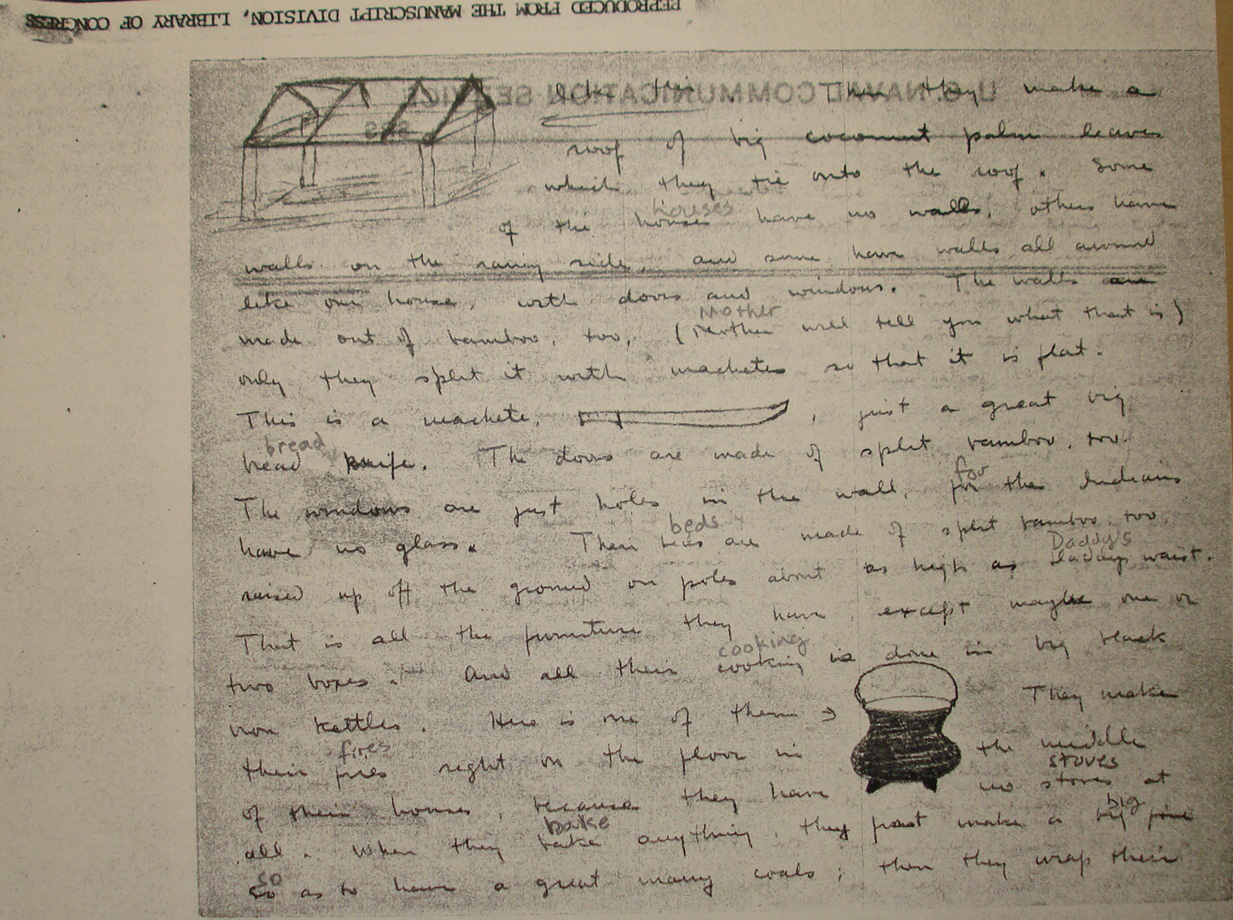 REPRODUCED FROM THE MANUSCRIPT DIVISION, LIBRARY OF CONGRESS
U.S. NAVAL COMMUNICATION SERVICE
like this. Then they make a
roof of big coconut palm leaves
which they tie onto the roof. Some
houses
of the houses have no walls, others have
walls on the rainy side, and some have walls all around
like our house, with doors and windows. The walls are
Mother
made out of bamboo, too, (Mother will tell you what that is)
only they split it with machetes so that it is flat.
This is a machete, , just a great big
bread
bread knife. The doors are made of split bamboo, too.
for
The windows are just holes in the wall, for the Indians
beds
have no glass. Their beds are made of split bamboo, too,
Daddy's
raised up off the ground on poles about as high as Daddy's waist.
That is all the furniture they have, except maybe one or
cooking
two boxes. And all their cooking is done in big black
iron kettles. Here is one of them → They make
fires
their fires right on the floor in the middle
stoves
of their houses, because they have no stoves at
bake big
all. When they bake anything, they just make a big fire
so
so as to have a great many coals; then they wrap their